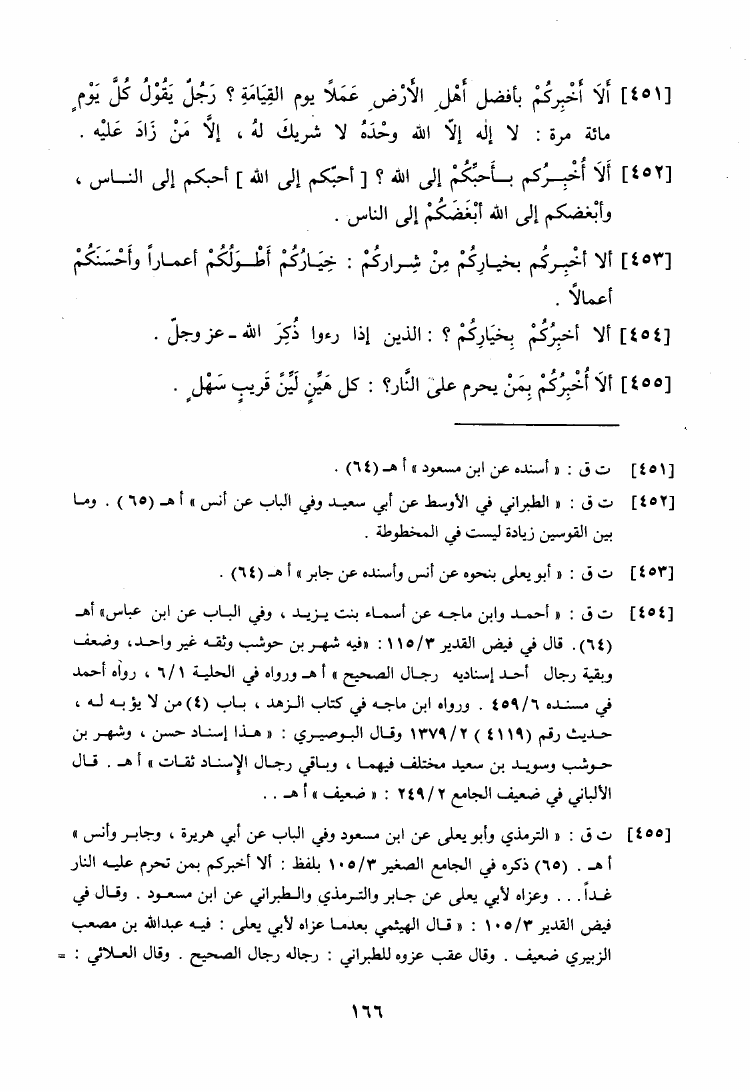 [٤٥١] أَلَا أُخْبِركُمْ بأفضل أَهْلِ الأَرْضِ عَمَلًا يوم القِيَامَةِ ؟ رَجُلٌ يَقُولُ كُلَّ يَوْمٍ
مائة مرة : لا إله إلّا الله وحْدَهُ لا شريكَ لهُ ، إلَّا مَنْ زَادَ عَلَيْه .
[٤٥٢] أَلَا أُخْبِرُكم بأَحبِّكُمْ إلى الله ؟ [ أحبّكم إلى الله ] أحبكم إلى الناس ،
وأبْغضكم إلى الله أبْغَضَكُمْ إلى الناس .
[٤٥٣] ألا أخْبِركُم بخيارِكُمْ مِنْ شِراركُمْ : خِيَارُكُمْ أَطْوَلُكُمْ أعماراً وأحْسَنَكُمْ
أعمالاً .
[٤٥٤] ألا أخبِرُكُمْ بِخيَارِكُمْ ؟ : الذين إذا رءوا ذُكِرَ الله - عز وجلّ .
[٤٥٥] ألَا أُخْبِرُكُمْ بِمَنْ يحرم على النَّار؟ : كل هَيِّنٍ لَيِّنٌ قَريبٍ سَهْلٍ .
[٤٥١] ت ق : « أسنده عن ابن مسعود » أ هـ (٦٤) .
[٤٥٢] ت ق : « الطبراني في الأوسط عن أبي سعيد وفي الباب عن أنس » أ هـ (٦٥) . وما
بين القوسين زيادة ليست في المخطوطة .
[٤٥٣] ت ق : « أبو يعلى بنحوه عن أنس وأسنده عن جابر » أ هـ (٦٤) .
[٤٥٤] ت ق : « أحمد وابن ماجه عن أسماء بنت يزيد ، وفي الباب عن ابن عباس» أهـ
(٦٤). قال في فيض القدير ١١٥/٣ : «فيه شهر بن حوشب وثقه غير واحد، وضعف
وبقية رجال أحد إسناديه رجال الصحيح » أ هـ ورواه في الحلية ٦/١ ، رواه أحمد
في مسنده ٤٥٩/٦ . ورواه ابن ماجه في كتاب الزهد ، باب (٤) من لا يؤبه له ،
حديث رقم (٤١١٩) ١٣٧٩/٢ وقال البوصيري : « هذا إسناد حسن ، وشهر بن
حوشب وسويد بن سعيد مختلف فيهما ، وباقي رجال الإسناد ثقات » أ هـ . قال
الألباني في ضعيف الجامع ٢٤٩/٢ : « ضعيف » أ هـ . .
[٤٥٥] ت ق : « الترمذي وأبو يعلى عن ابن مسعود وفي الباب عن أبي هريرة ، وجابر وأنس »
أ هـ . (٦٥) ذكره في الجامع الصغير ١٠٥/٣ بلفظ : ألا أخبركم بمن تحرم عليه النار
غداً . . . وعزاه لأبي يعلى عن جابر والترمذي والطبراني عن ابن مسعود . وقال في
فيض القدير ١٠٥/٣ : « قال الهيثمي بعدما عزاه لأبي يعلى : فيه عبدالله بن مصعب
الزبيري ضعيف . وقال عقب عزوه للطبراني : رجاله رجال الصحيح . وقال العلائي : =
١٦٦